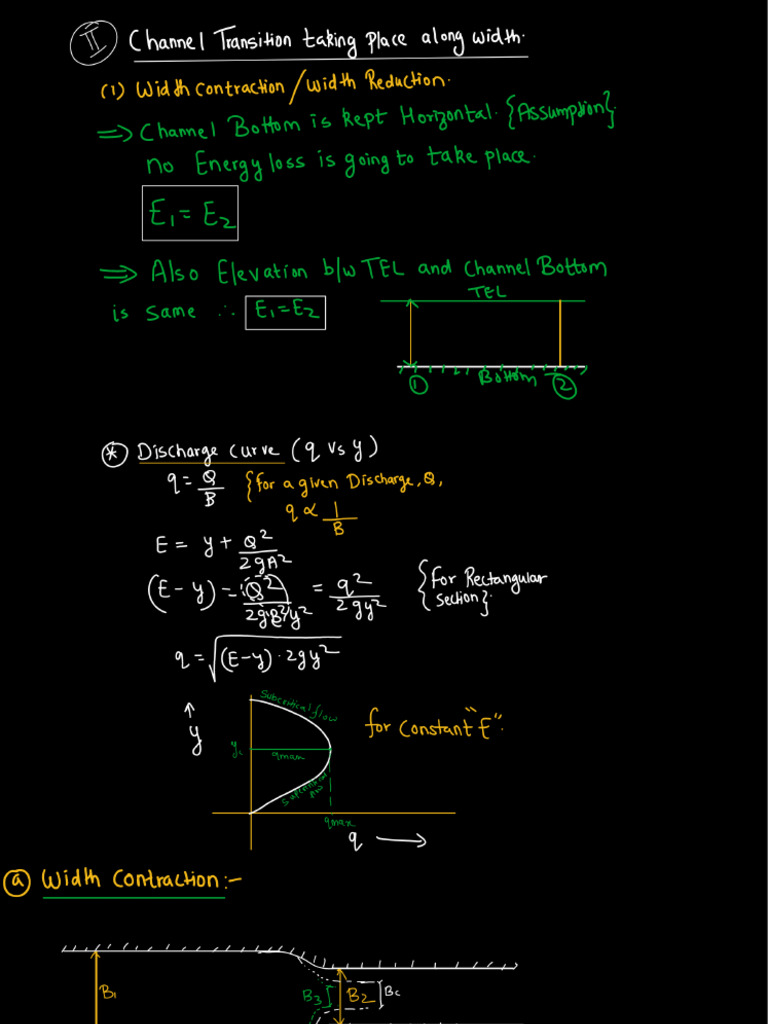 II Channel Transition taking place along width.
(1) Width contraction / Width Reduction.
⇒ Channel Bottom is kept Horizontal. {Assumption}.
no Energy loss is going to take place.
E₁ = E₂
⇒ Also Elevation b/w TEL and Channel Bottom
is same ∴ E₁ = E₂
TEL
① Bottom ②
* Discharge curve (q vs y)
q = Q/B {for a given Discharge, Q,
q ∝ 1/B
E = y + Q²/2gA²
(E - y) = Q²/2gB²y² = q²/2gy² {For Rectangular
Section}.
q = √(E-y)·2gy²
Subcritical flow
↑
y
for constant "E".
yc
qmax
qmax
q →
ⓐ Width Contraction:-
B₁
B₃ B₂ Bc